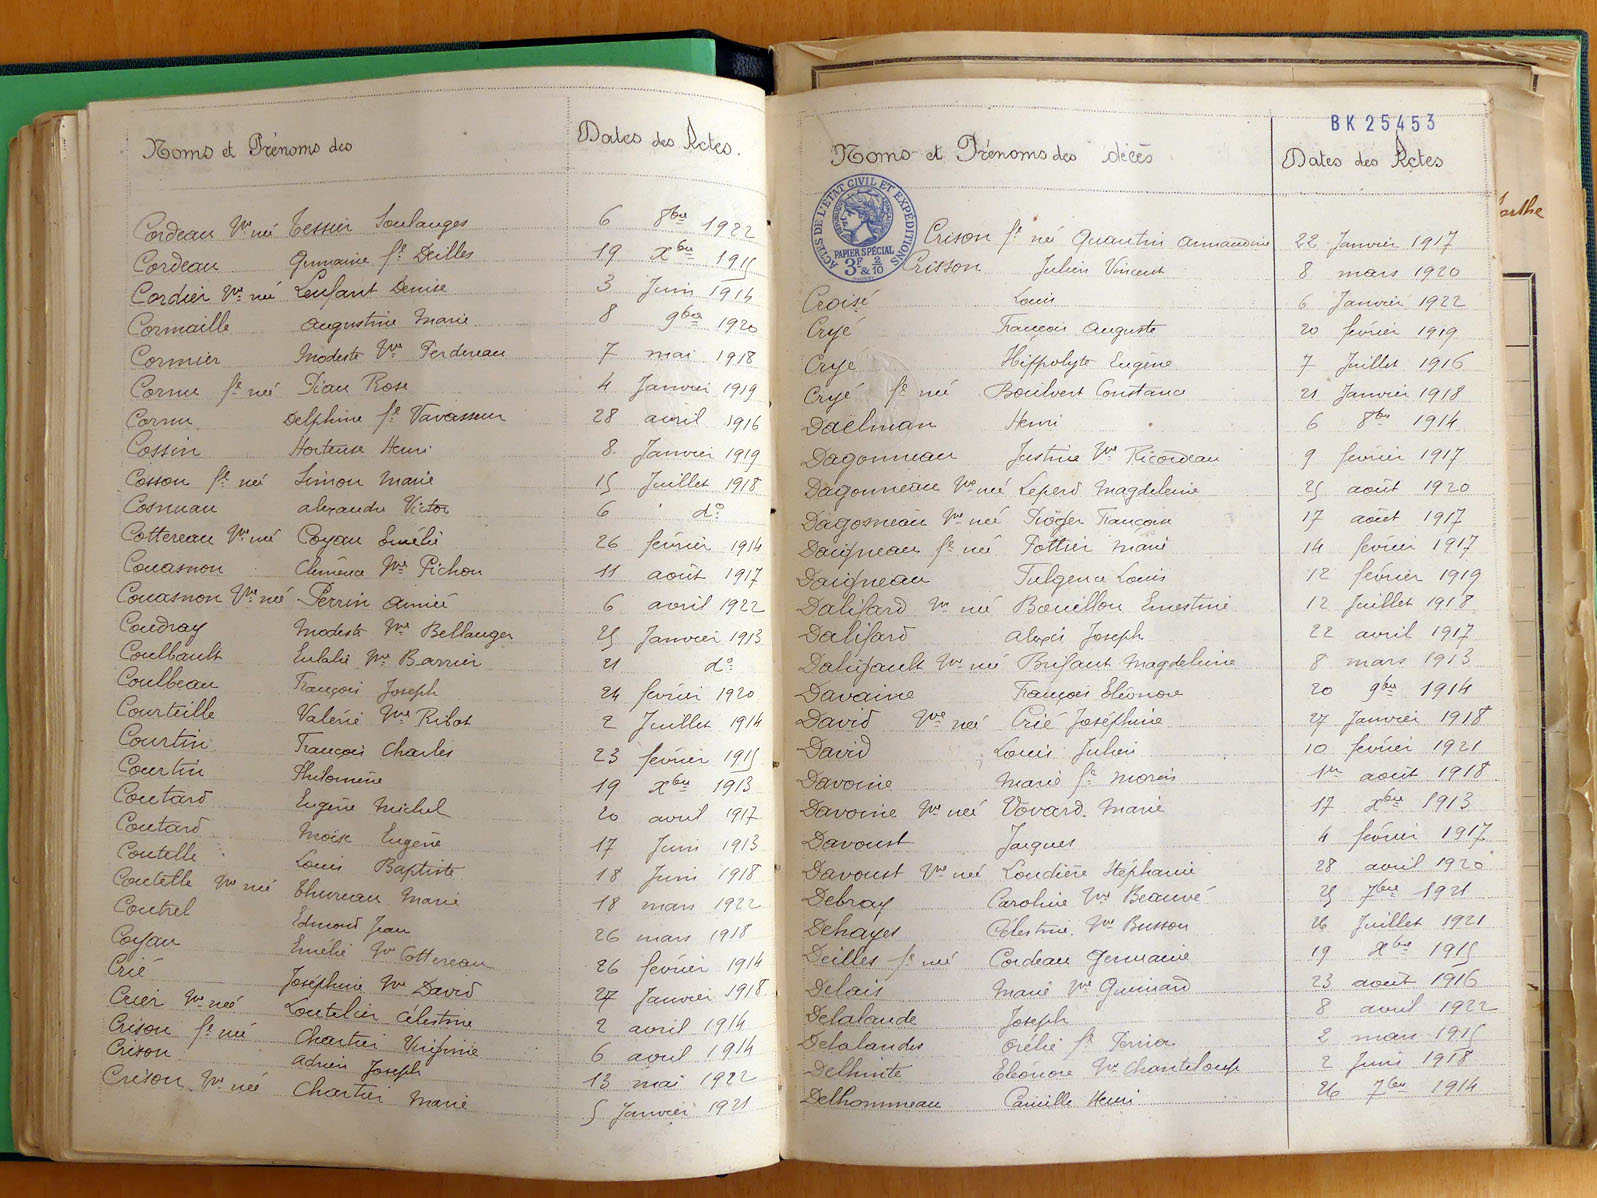 Noms et Prénoms des
Dates des Actes.
Cordeau Vve née Tessier Soulanges 6 8bre 1922
Cordeau Germaine fe Deilles 19 Xbre 1915
Cordier Vve née Lenfant Denise 3 Juin 1914
Cormaille Augustine Marie 8 9bre 1920
Cormier Modeste Vve Ferdereau 7 mai 1918
Cornu fe née Piau Rose 4 Janvier 1919
Cornu Delphine fe Vavasseur 28 avril 1916
Cossin Hortense Henri 8 Janvier 1919
Cosson fe née Simon Marie 15 Juillet 1918
Cosnuau alexandre Victor 6 do
Cottereau Vve née Coyau Emélie 26 février 1914
Couasnon Clémence Vve Pichon 11 août 1917
Couasnon Vve née Perrin aimée 6 avril 1922
Coudray Modeste Vve Bellanger 25 Janvier 1913
Coulbault Eulalie Vve Barrier 21 do
Coulbeau François Joseph 24 février 1920
Courteille Valérie Vve Ribot 2 Juillet 1914
Courtin François Charles 23 février 1915
Courtin Philomène 19 Xbre 1913
Coutard Eugène Michel 20 avril 1917
Coutard Moïse Eugène 17 Juin 1913
Coutelle Louis Baptiste 18 Juin 1918
Coutelle Vve née Thureau Marie 18 mars 1922
Coutrel Edmond Jean 26 mars 1918
Coyau Emélie Vve Cottereau 26 février 1914
Crié Joséphine Vve David 27 Janvier 1918
Crier Vve née Loutelier Célestine 2 avril 1914
Crison fe née Chartier Virginie 6 avril 1914
Crison Adrien Joseph 13 mai 1922
Crison Vve née Chartier Marie 5 Janvier 1921
BK 25453
Noms et Prénoms des décès
Dates des Actes
ACTES DE L'ETAT CIVIL ET EXPÉDITIONS
PAPIER SPÉCIAL
3F & 2/10
Crison fe née Quantin Armandine 22 Janvier 1917
Crisson Julien Vincent 8 mars 1920
Croisé Louis 6 Janvier 1922
Cryé François Auguste 20 février 1919
Cryé Hippolyte Eugène 7 Juillet 1916
Cryé fe née Boulvert Constance 21 Janvier 1918
Daelman Henri 6 8bre 1914
Dagonneau Justine Vve Ricordeau 9 février 1917
Dagonneau Vve née Leperd Magdeleine 25 août 1920
Dagosneau Vve née Froger Françoise 17 août 1917
Daigneau fe née Pottier Marie 14 février 1917
Daigneau Fulgence Louis 12 février 1919
Dalifard Vve née Bouillon Ernestine 12 Juillet 1918
Dalifard Alexis Joseph 22 avril 1917
Dalifault Vve née Brifaut Magdeleine 8 mars 1913
Davaine François Eléonore 20 9bre 1914
David Vve née Crié Joséphine 27 Janvier 1918
David Louis Julien 10 février 1921
Davoine Marie fe Morin 1er août 1918
Davoine Vve née Vovard Marie 17 Xbre 1913
Davoust Jacques 4 février 1917
Davoust Vve née Loudière Stéphanie 28 avril 1920
Debray Caroline Vve Beauvé 25 7bre 1921
Dehayes Célestine Vve Busson 26 Juillet 1921
Deilles fe née Cordeau Germaine 19 Xbre 1915
Delais Marie Vve Guimard 23 août 1916
Delalande Joseph 8 avril 1922
Delalandes Orélie fe Perrier 2 mars 1915
Delhinte Eléonore Vve Chanteloup 2 Juin 1918
Delhommeau Camille Henri 26 7bre 1914